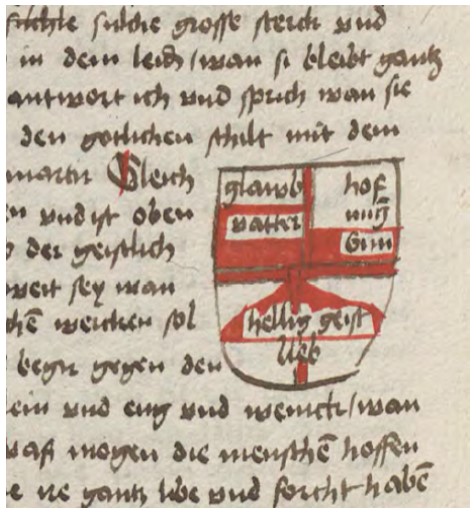 solche grosse sterck vnd
in dem leich / wan si bleibt gantz
antwort ich vnd sprich wan sie
den gotlichen schilt mit dem
martir Gleich
vnd ist oben
der geistlich
weit sey wan
weichen sol
begir gegen den
ein vnd eng vnd / wan
was mogen die menschē hoffen
ne gantz libe vnd forcht habē
glawb
vatter
hof
nūg
sun
heilig geist
lieb